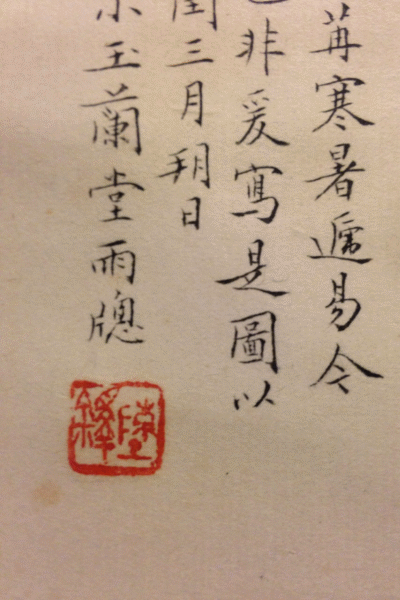 苒寒暑遞易今
非爰寫是圖以
閏三月朔日
玉蘭堂雨牕